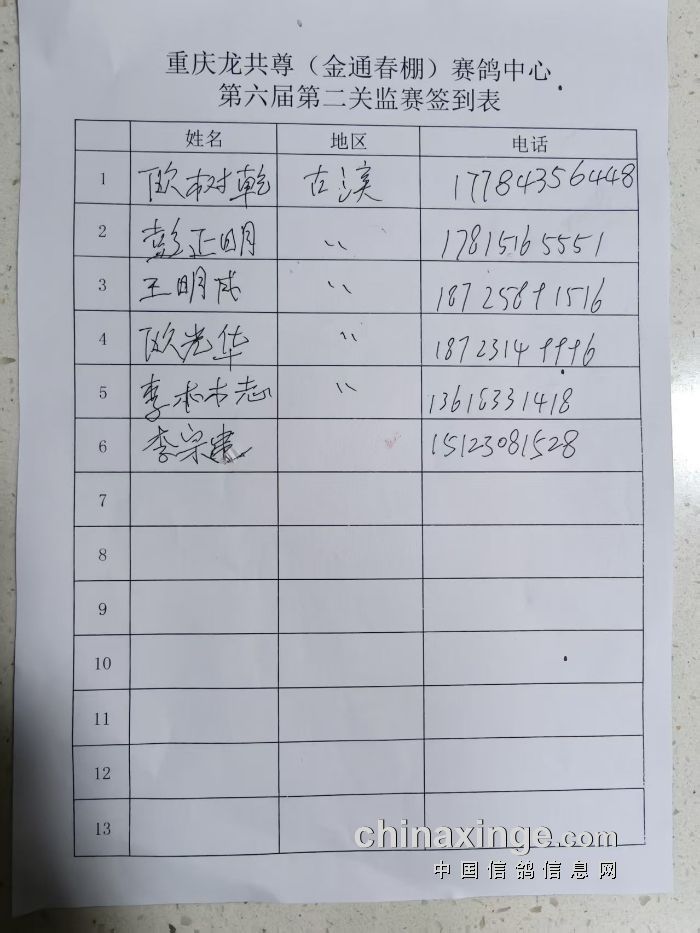 重庆龙共尊（金通春棚）赛鸽中心
第六届第二关监赛签到表
姓名 地区 电话
1 欧树乾 古溪 17784356448
2 彭正明 〃 17815165551
3 王明成 〃 18725891516
4 欧光华 〃 18723149996
5 李木书志 〃 13618331418
6 李宗 15123081528
7
8
9
10
11
12
13
chinaxinge.com
中国信鸽信息网